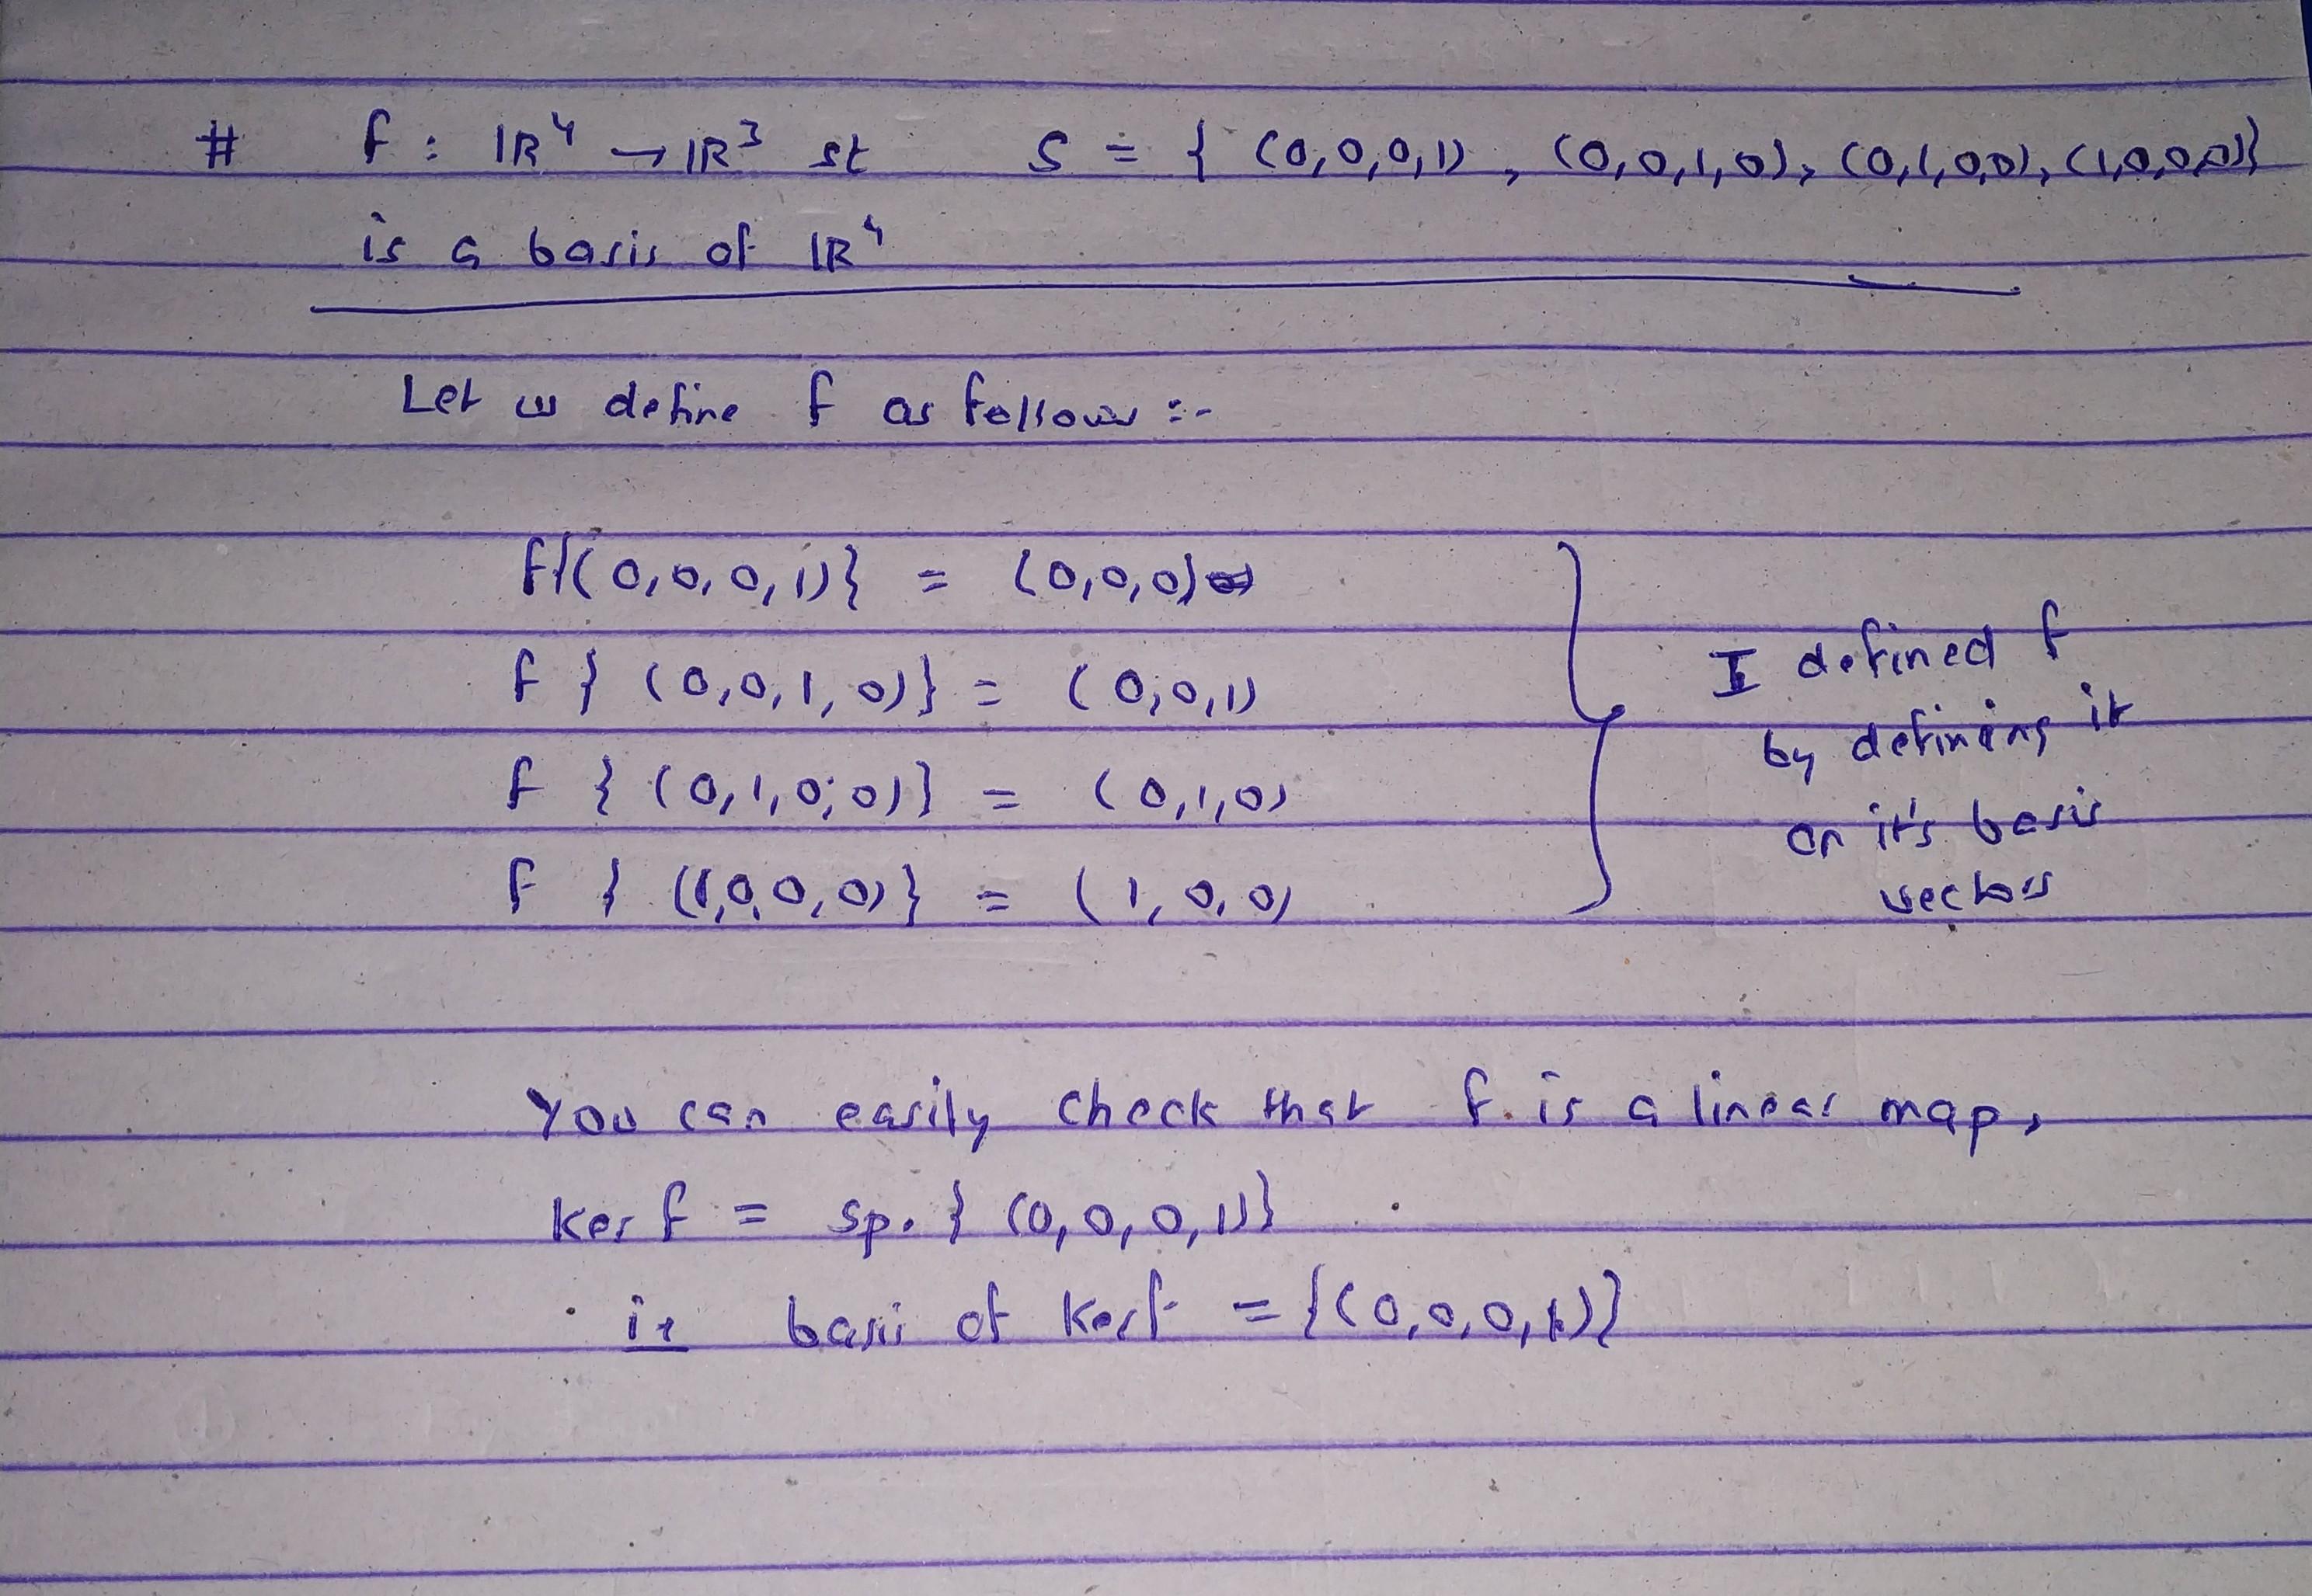 # f : IR⁴ → IR³ st S = { (0,0,0,1) , (0,0,1,0), (0,1,0,0), (1,0,0,0)}
is a basis of IR⁴
Let us define f as follows :-
f{(0,0,0,1)} = (0,0,0)
f { (0,0,1,0)} = (0,0,1)
f { (0,1,0,0)} = (0,1,0)
f { (1,0,0,0)} = (1,0,0)
I defined f
by defining it
on it's basis
vectors
You can easily check that f is a linear map,
Ker f = sp. { (0,0,0,1)}
ie basis of Kerf = {(0,0,0,1)}